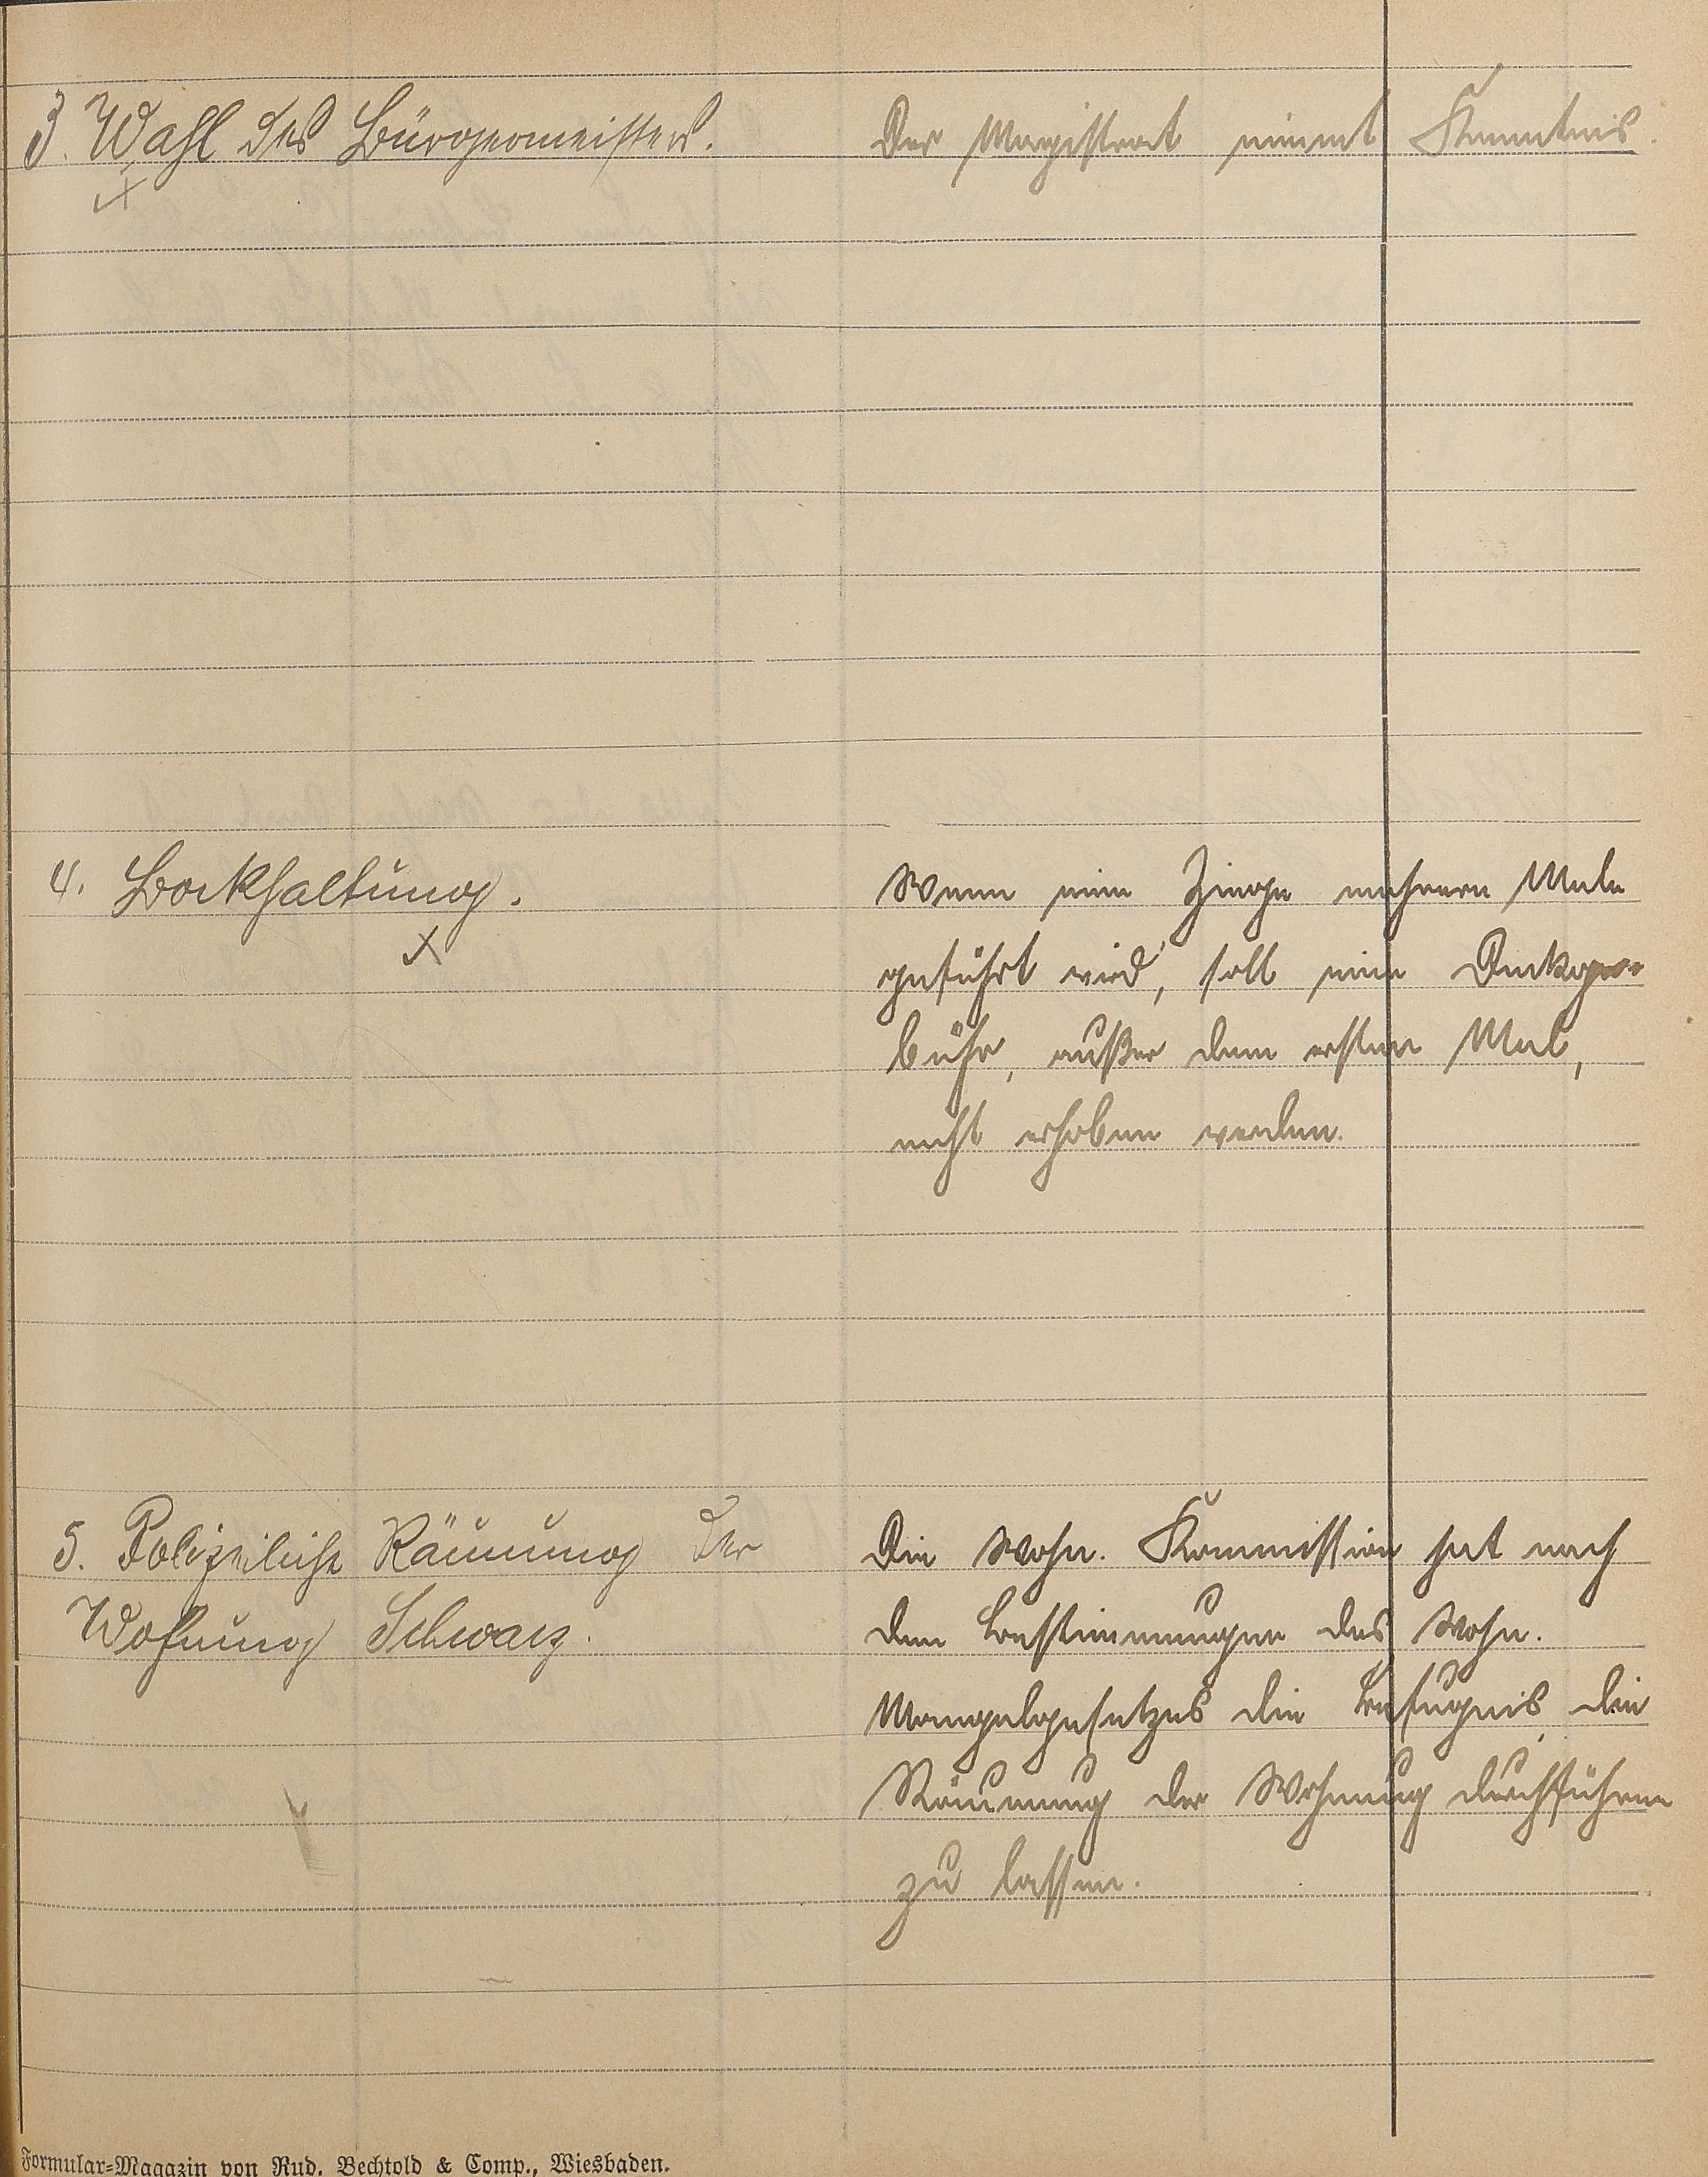 3. Wahl des Bürgermeisters.
Der Magistrat nimmt Kenntnis.
4. Bockhaltung.
Wenn eine Ziege mehrere Male
geführt wird, soll eine Deckge-
bühr, außer dem ersten Mal,
nicht erhoben werden.
5. Polizeiliche Räumung der
Wohnung Schwarz.
Die Wohn. Kommission hat nach
den Bestimmungen des Wohn.
Mangelgesetzes die Befugnis, die
Räumung der Wohnung durchführen
zu lassen.
Formular-Magazin von Rud. Bechtold & Comp., Wiesbaden.